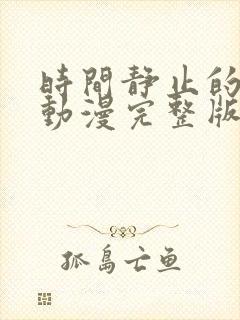 時間静止的
動漫完整版
孤島亡鱼